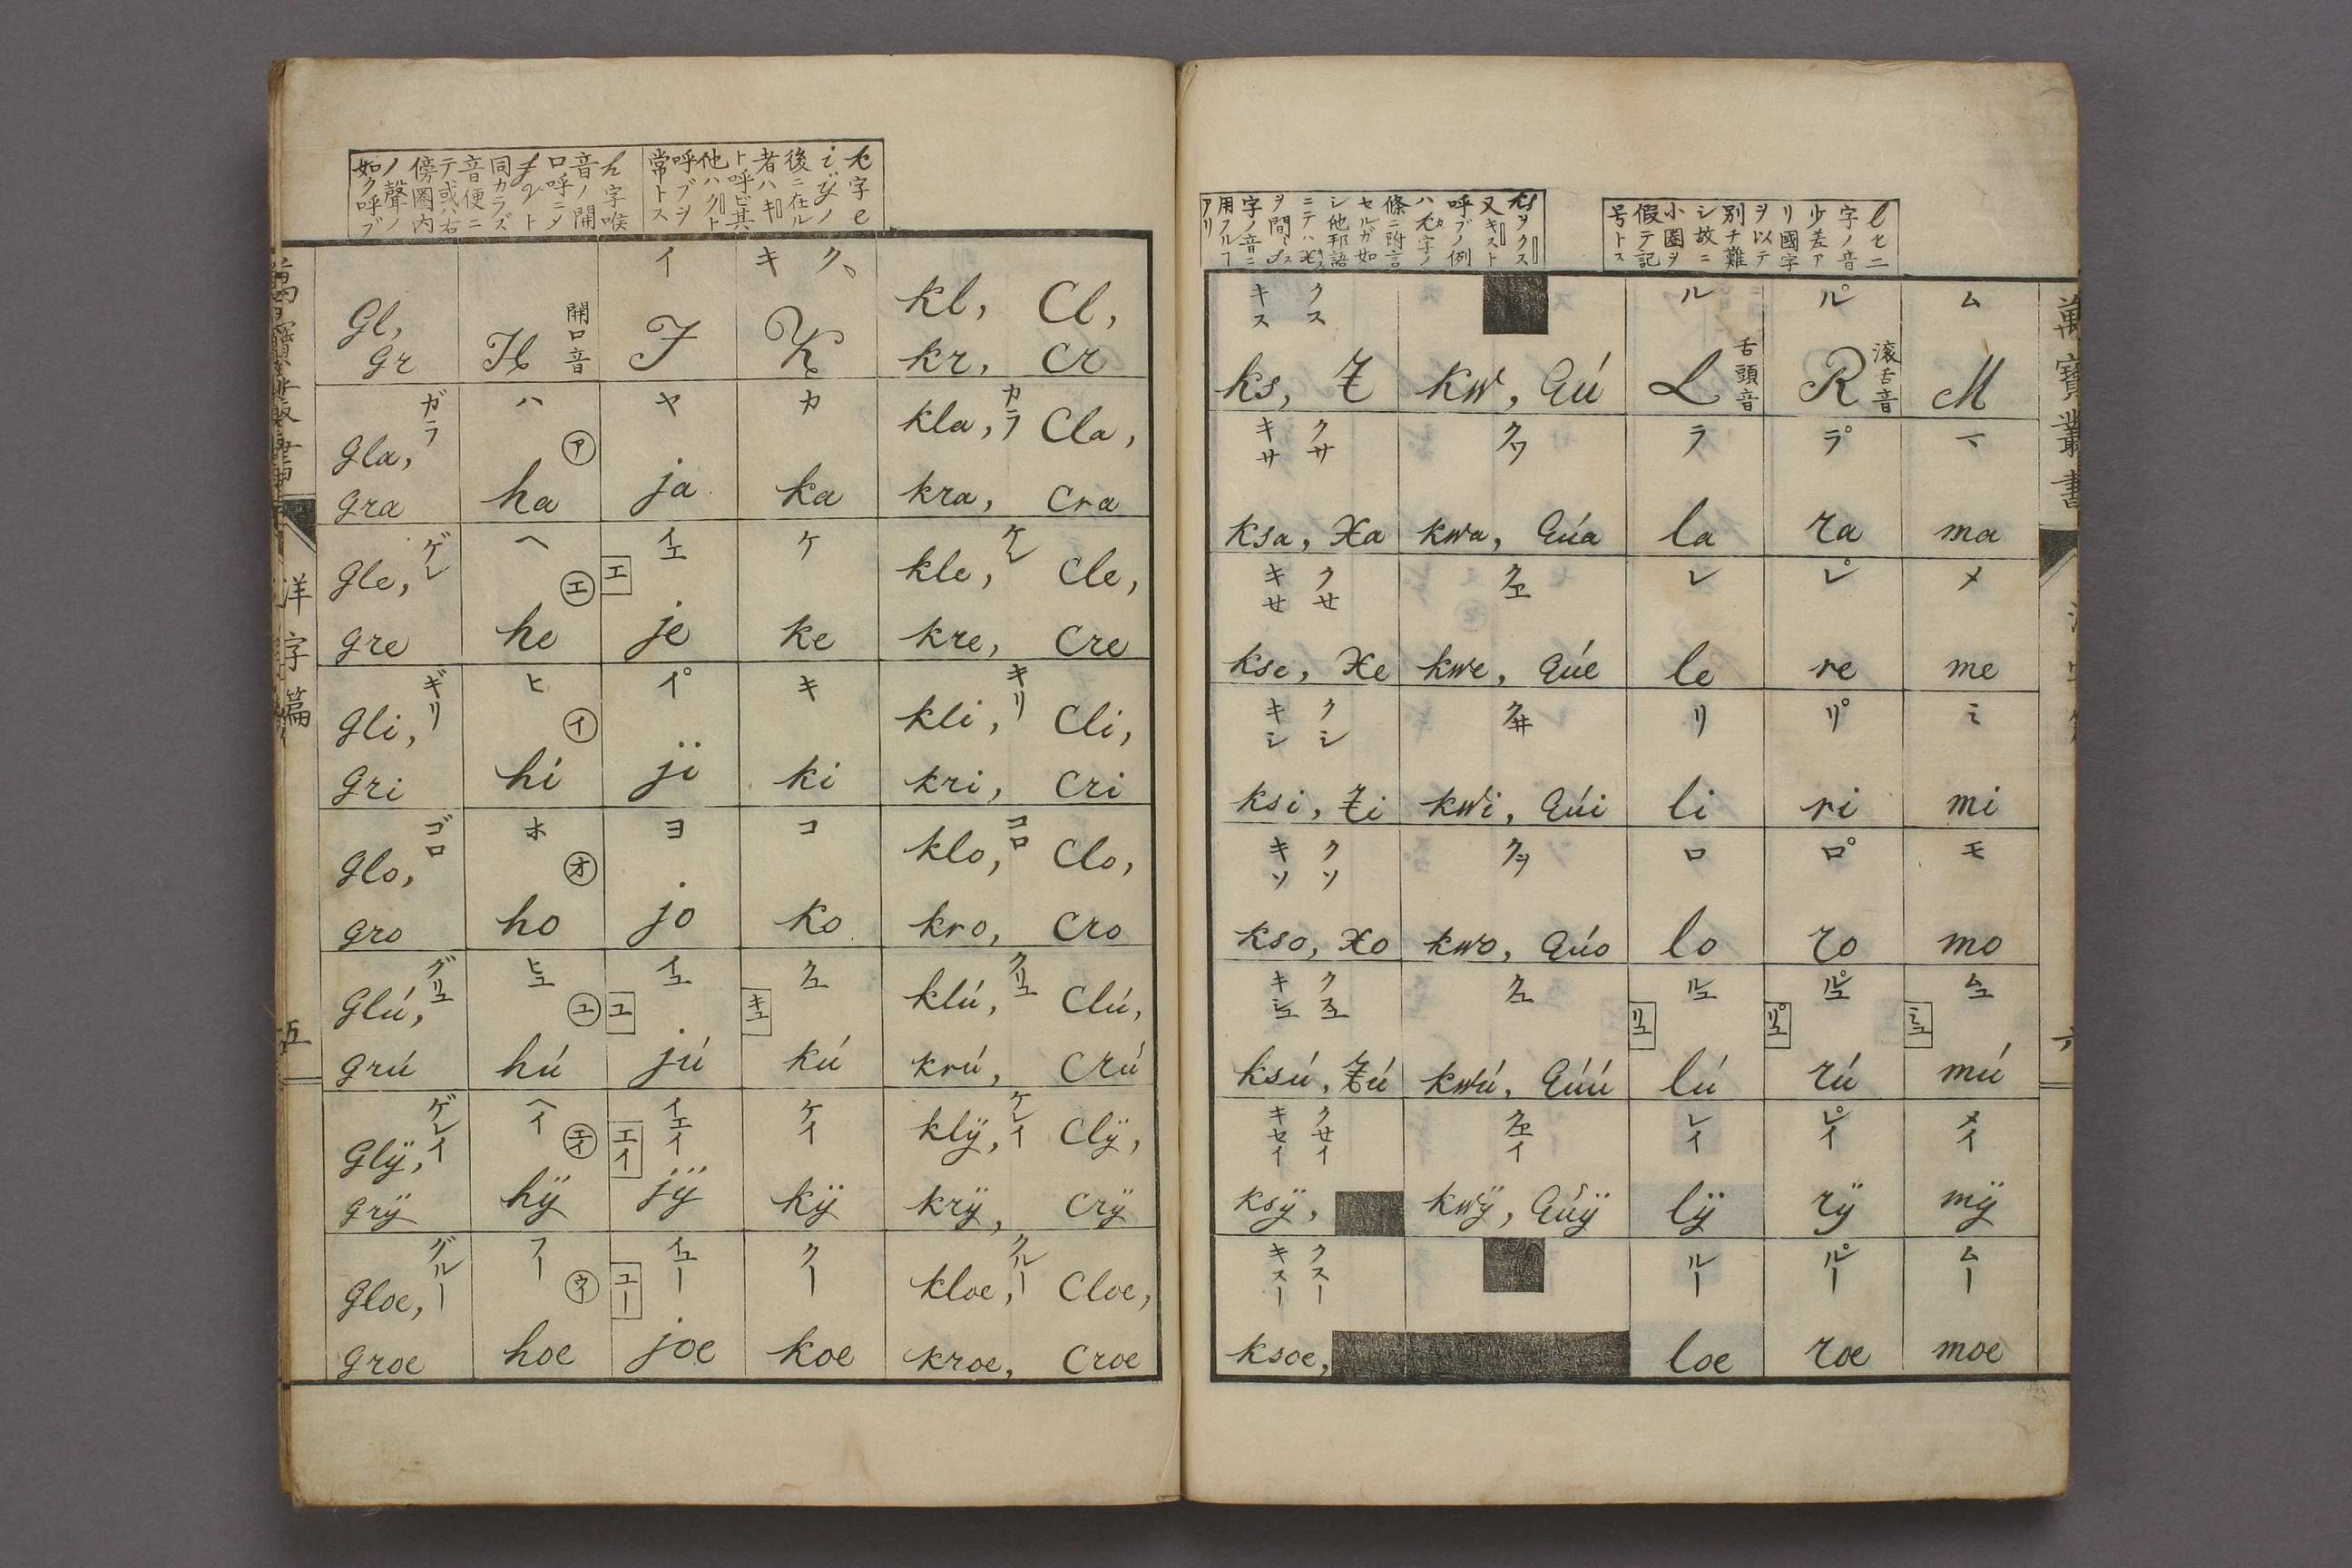 k字e
i ijノ
後ニ在ル
者ハキ
ト呼ビ其
他ハクト
呼ブヲ
常トス
h字喉
音ノ開
口呼ニメ
fvト
同カラズ
音便ニ
テ或ハ右
傍圏内
ノ聲ノ
如ク呼ブ
kl, Cl,
kr, Cr
ク、キ
K
イ
J
開口音
H
Gl,
Gr
カラ
kla, Cla,
kra, Cra
カ
ka
ヤ
ja
ハ
ア
ha
ガラ
Gla,
gra
ケレ
kle, Cle,
kre, Cre
ケ
ke
イエ
エ
je
ヘ
エ
he
ゲレ
Gle,
gre
キリ
kli, Cli,
kri, Cri
キ
ki
イ゚
ji
ヒ
イ
hi
ギリ
Gli,
Gri
コロ
klo, Clo,
kro, Cro
コ
ko
ヨ
jo
ホ
オ
ho
ゴロ
Glo,
gro
クリユ
klú, Clú,
krú, Crú
クユ
キユ
kú
イユ
ユ
jú
ヒユ
ユ
hú
グリユ
Glú,
grú
ケレイ
klÿ, Clÿ,
krÿ, Crÿ
ケイ
kÿ
イエイ
エイ
jÿ
ヘイ
エイ
hÿ
ゲレイ
Glÿ,
grÿ
クルー
kloe, Cloe,
kroe, Croe
クー
koe
イユー
ユー
joe
フー
ウ
hoe
グルー
Gloe,
groe
洋字篇
五
lトニ
字ノ音
少差ア
リ國字
ヲ以テ
別チ難
シ故ニ
小圏ヲ
假テ記
号トス
ksヲクス
又キスト
呼ブノ例
ハk字ノ
條ニ附言
セルガ如
シ他邦語
ニテハx
ヲ間々s
字ノ音ニ
用フルヿ
アリ
萬寶叢書
ム
M
ル゚
滚舌音
R
ル
舌頭音
L
kw, Qú
クス
キス
ks, X
マ
ma
ラ゚
ra
ラ
la
クワ
kwa, Qúa
クサ
キサ
ksa, Xa
メ
me
レ゚
re
レ
le
クヱ
kwe, Qúe
クセ
キセ
kse, Xe
ミ
mi
リ゚
ri
リ
li
クヰ
kwi, Qúi
クシ
キシ
ksi, Xi
モ
mo
ロ゚
ro
ロ
lo
クヲ
kwo, Qúo
クソ
キソ
kso, Xo
ムユ
ミユ
mú
ル゚ユ
リ゚ユ
rú
ルユ
リユ
lú
クユ
kwú, Qúú
クスユ
キシユ
ksú, Xú
メイ
mÿ
レ゚イ
rÿ
レイ
lÿ
クヱイ
kwÿ, Qúÿ
クセイ
キセイ
ksÿ,
ムー
moe
ル゚ー
roe
ルー
loe
クスー
キスー
ksoe,